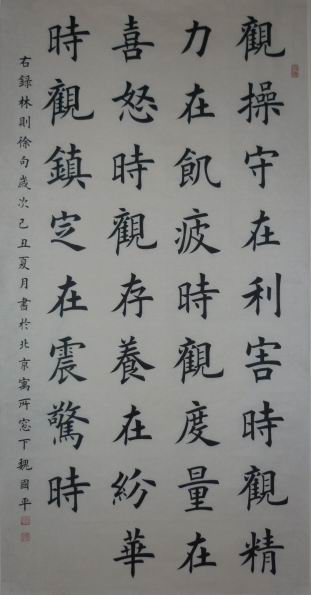 觀操守在利害時觀精
力在飢疲時觀度量在
喜怒時觀存養在紛華
時觀鎮定在震驚時
右録林則徐句歲次己丑夏月書於北京寓所窓下魏國平